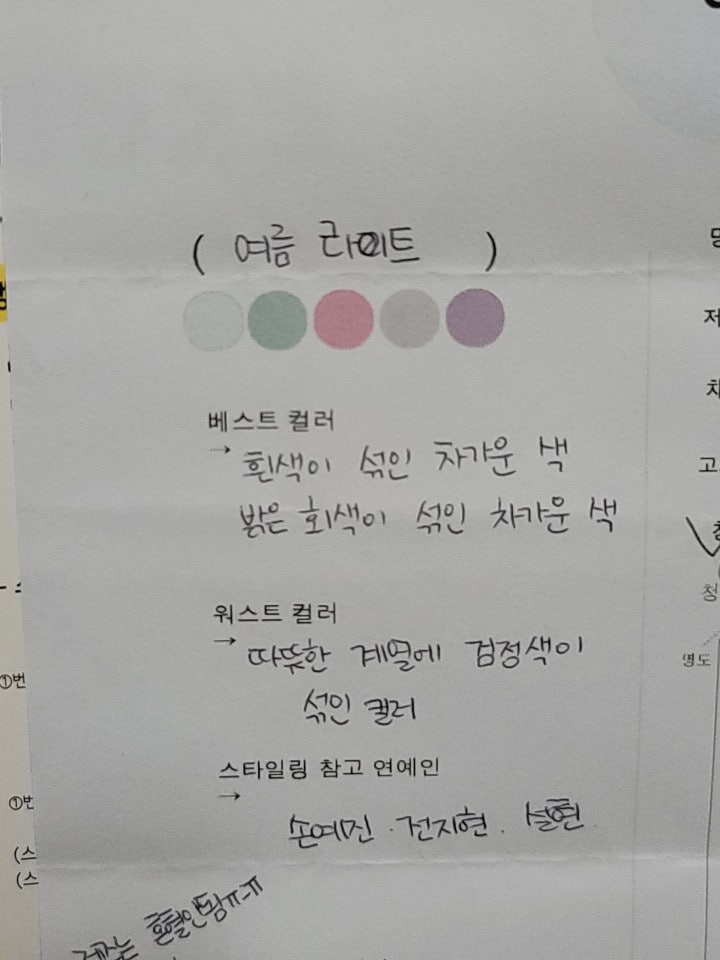 ( 여름 라이트 )
베스트 컬러
→ 흰색이 섞인 차가운 색
밝은 회색이 섞인 차가운 색
워스트 컬러
→ 따뜻한 계열에 검정색이
섞인 컬러
스타일링 참고 연예인
→
손예진 · 전지현 . 설현
①번
①번
(스
(스
저
고
청
명도